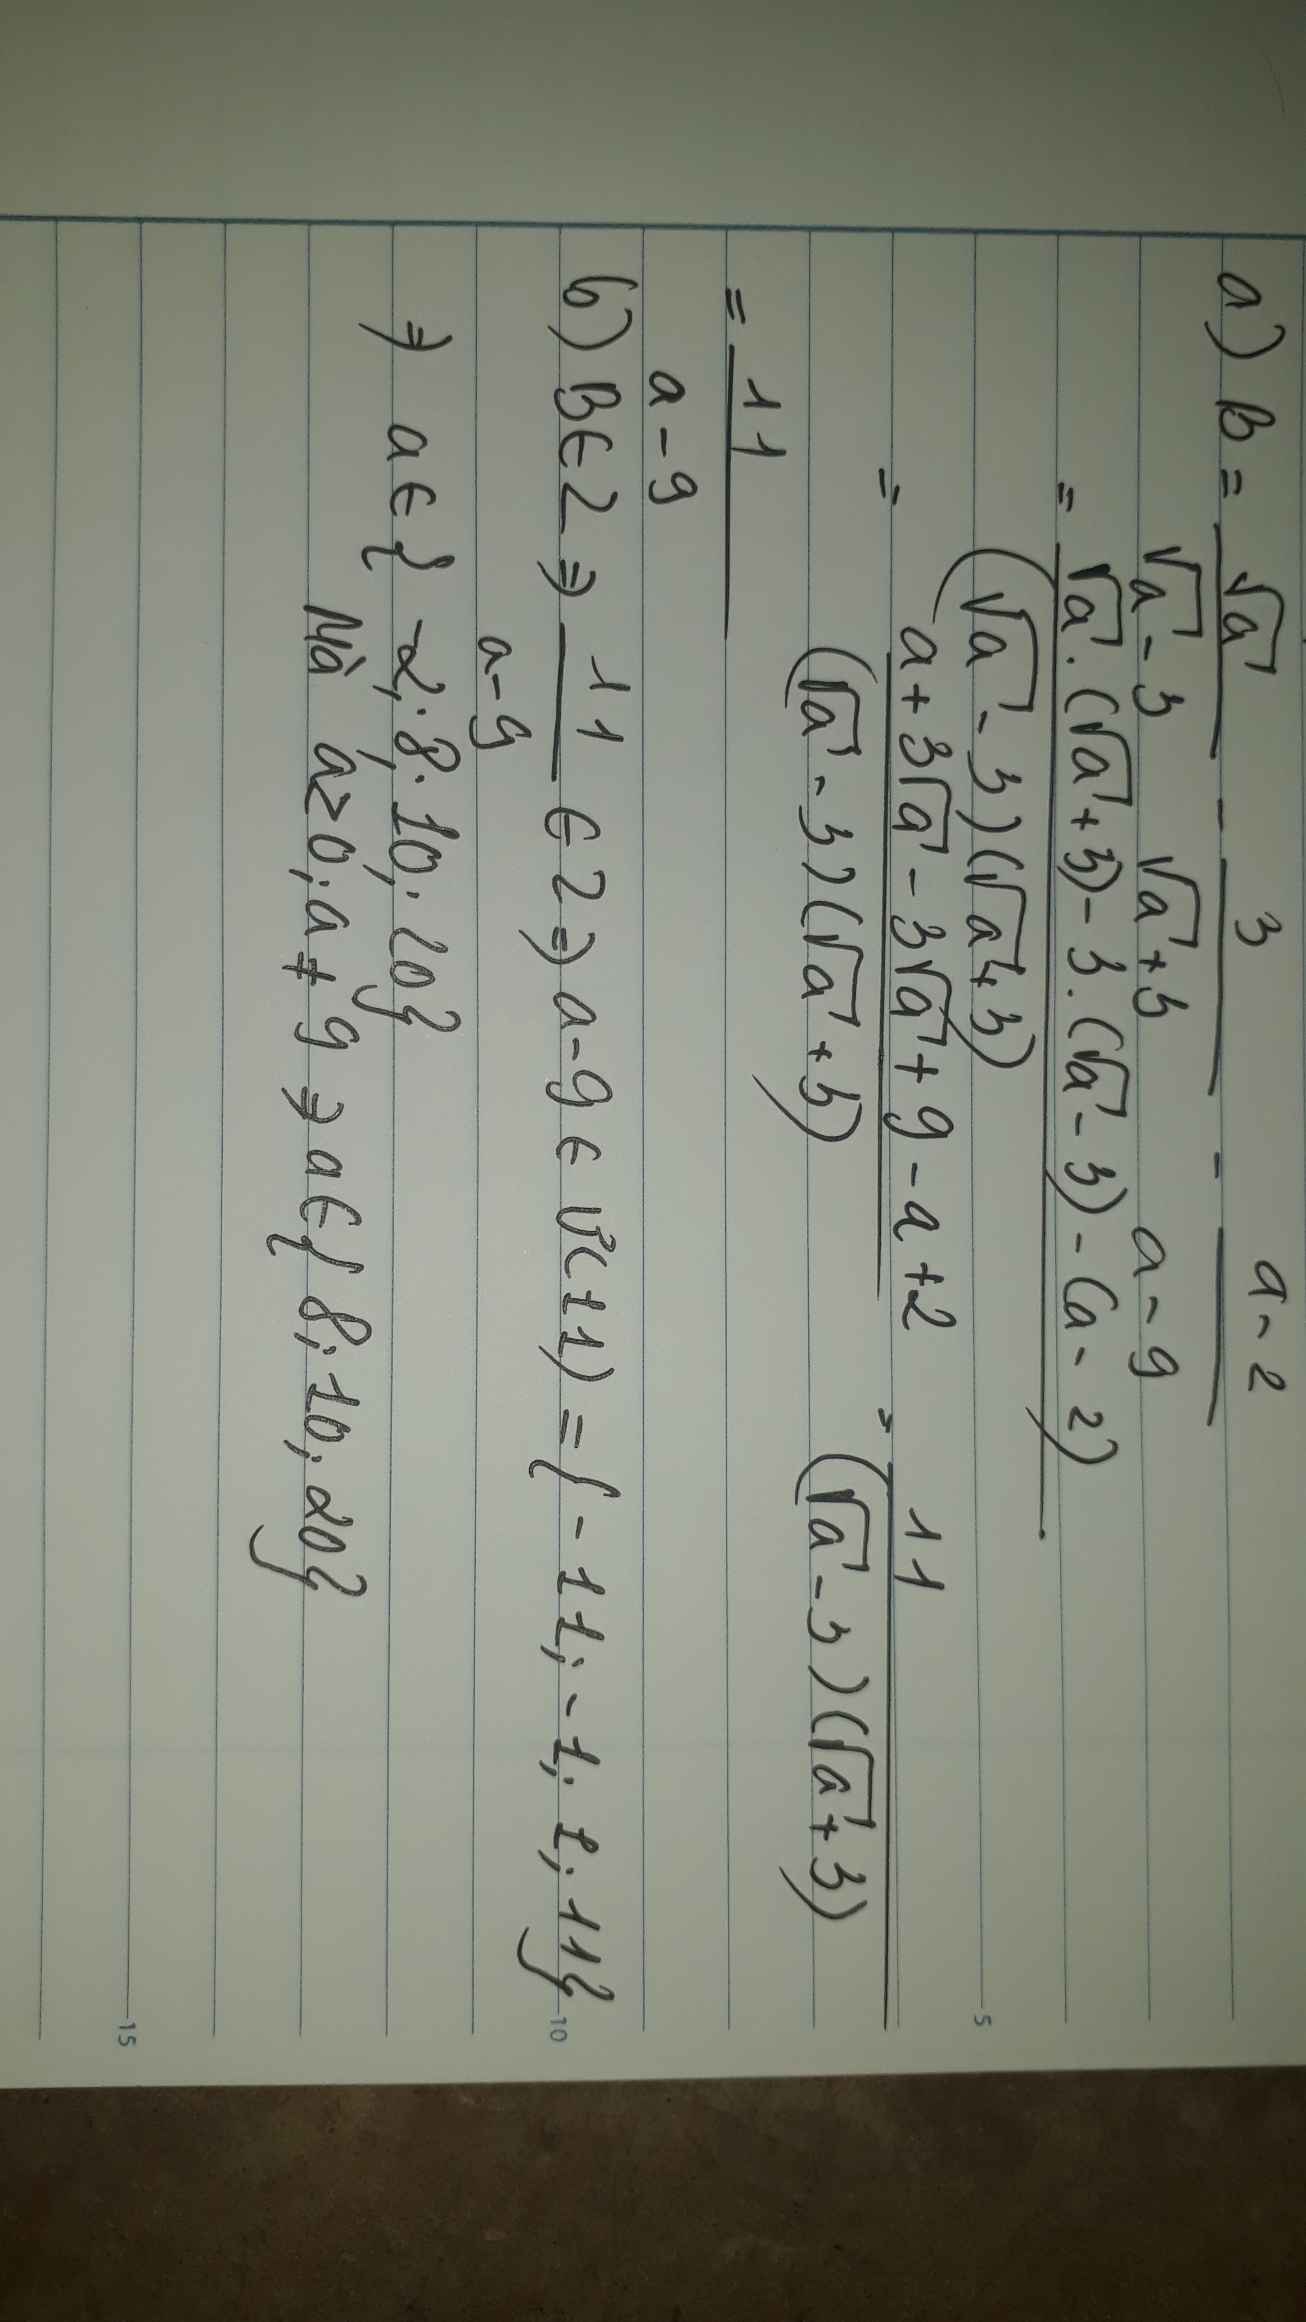 a) B = √a / (√a - 3) - 3 / (√a + 3) - (a - 2) / (a - 9)
= (√a . (√a + 3) - 3 . (√a - 3) - (a - 2)) / ((√a - 3)(√a + 3))
= (a + 3√a - 3√a + 9 - a + 2) / ((√a - 3)(√a + 3)) = 11 / ((√a - 3)(√a + 3))
= 11 / (a - 9)
b) B ∈ Z ⇒ 11 / (a - 9) ∈ Z ⇒ a - 9 ∈ Ư(11) = {-11; -1; 1; 11}
⇒ a ∈ {-2; 8; 10; 20}
Mà a ≥ 0; a ≠ 9 ⇒ a ∈ {8; 10; 20}
5
10
15